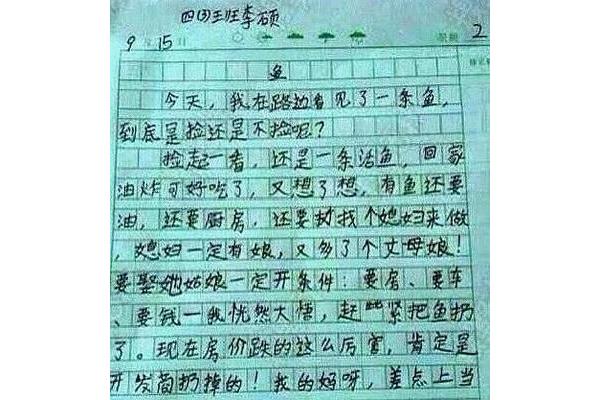 四 李硕
9月15日 星期2
鱼
今天，我在路边看见了一条鱼，
到底是捡还是不捡呢？
捡起一看，还是一条活鱼，回家
油炸可好吃了，又想了想，有鱼还要
油，还要厨房，还要找个媳妇来做
，媳妇一定有娘，又多了个丈母娘！
要娶她姑娘一定开条件：要房、要车
、要钱一我恍然大悟，赶紧把鱼扔
了。现在房价跌的这么厉害，肯定是
开发商扔掉的！我的妈呀，差点上当